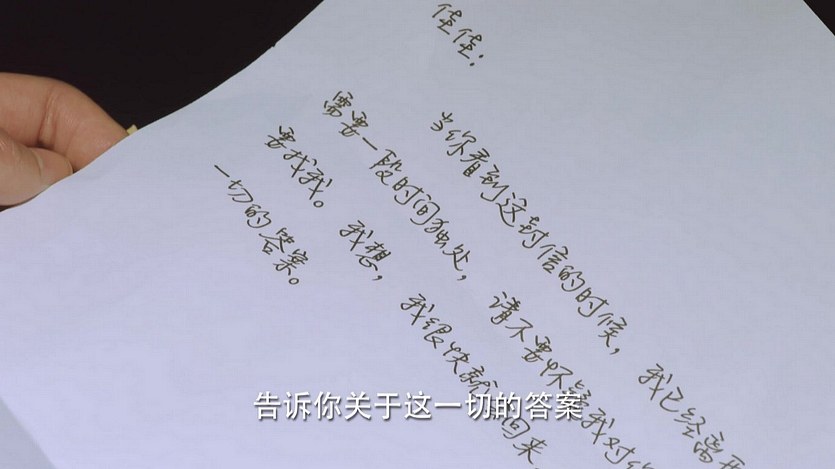 佳佳：
当你看到这封信的时候，我已经离开
需要一段时间独处，请不要怀疑我对你
要找我。我想，我很快就回来
一切的答案。
告诉你关于这一切的答案